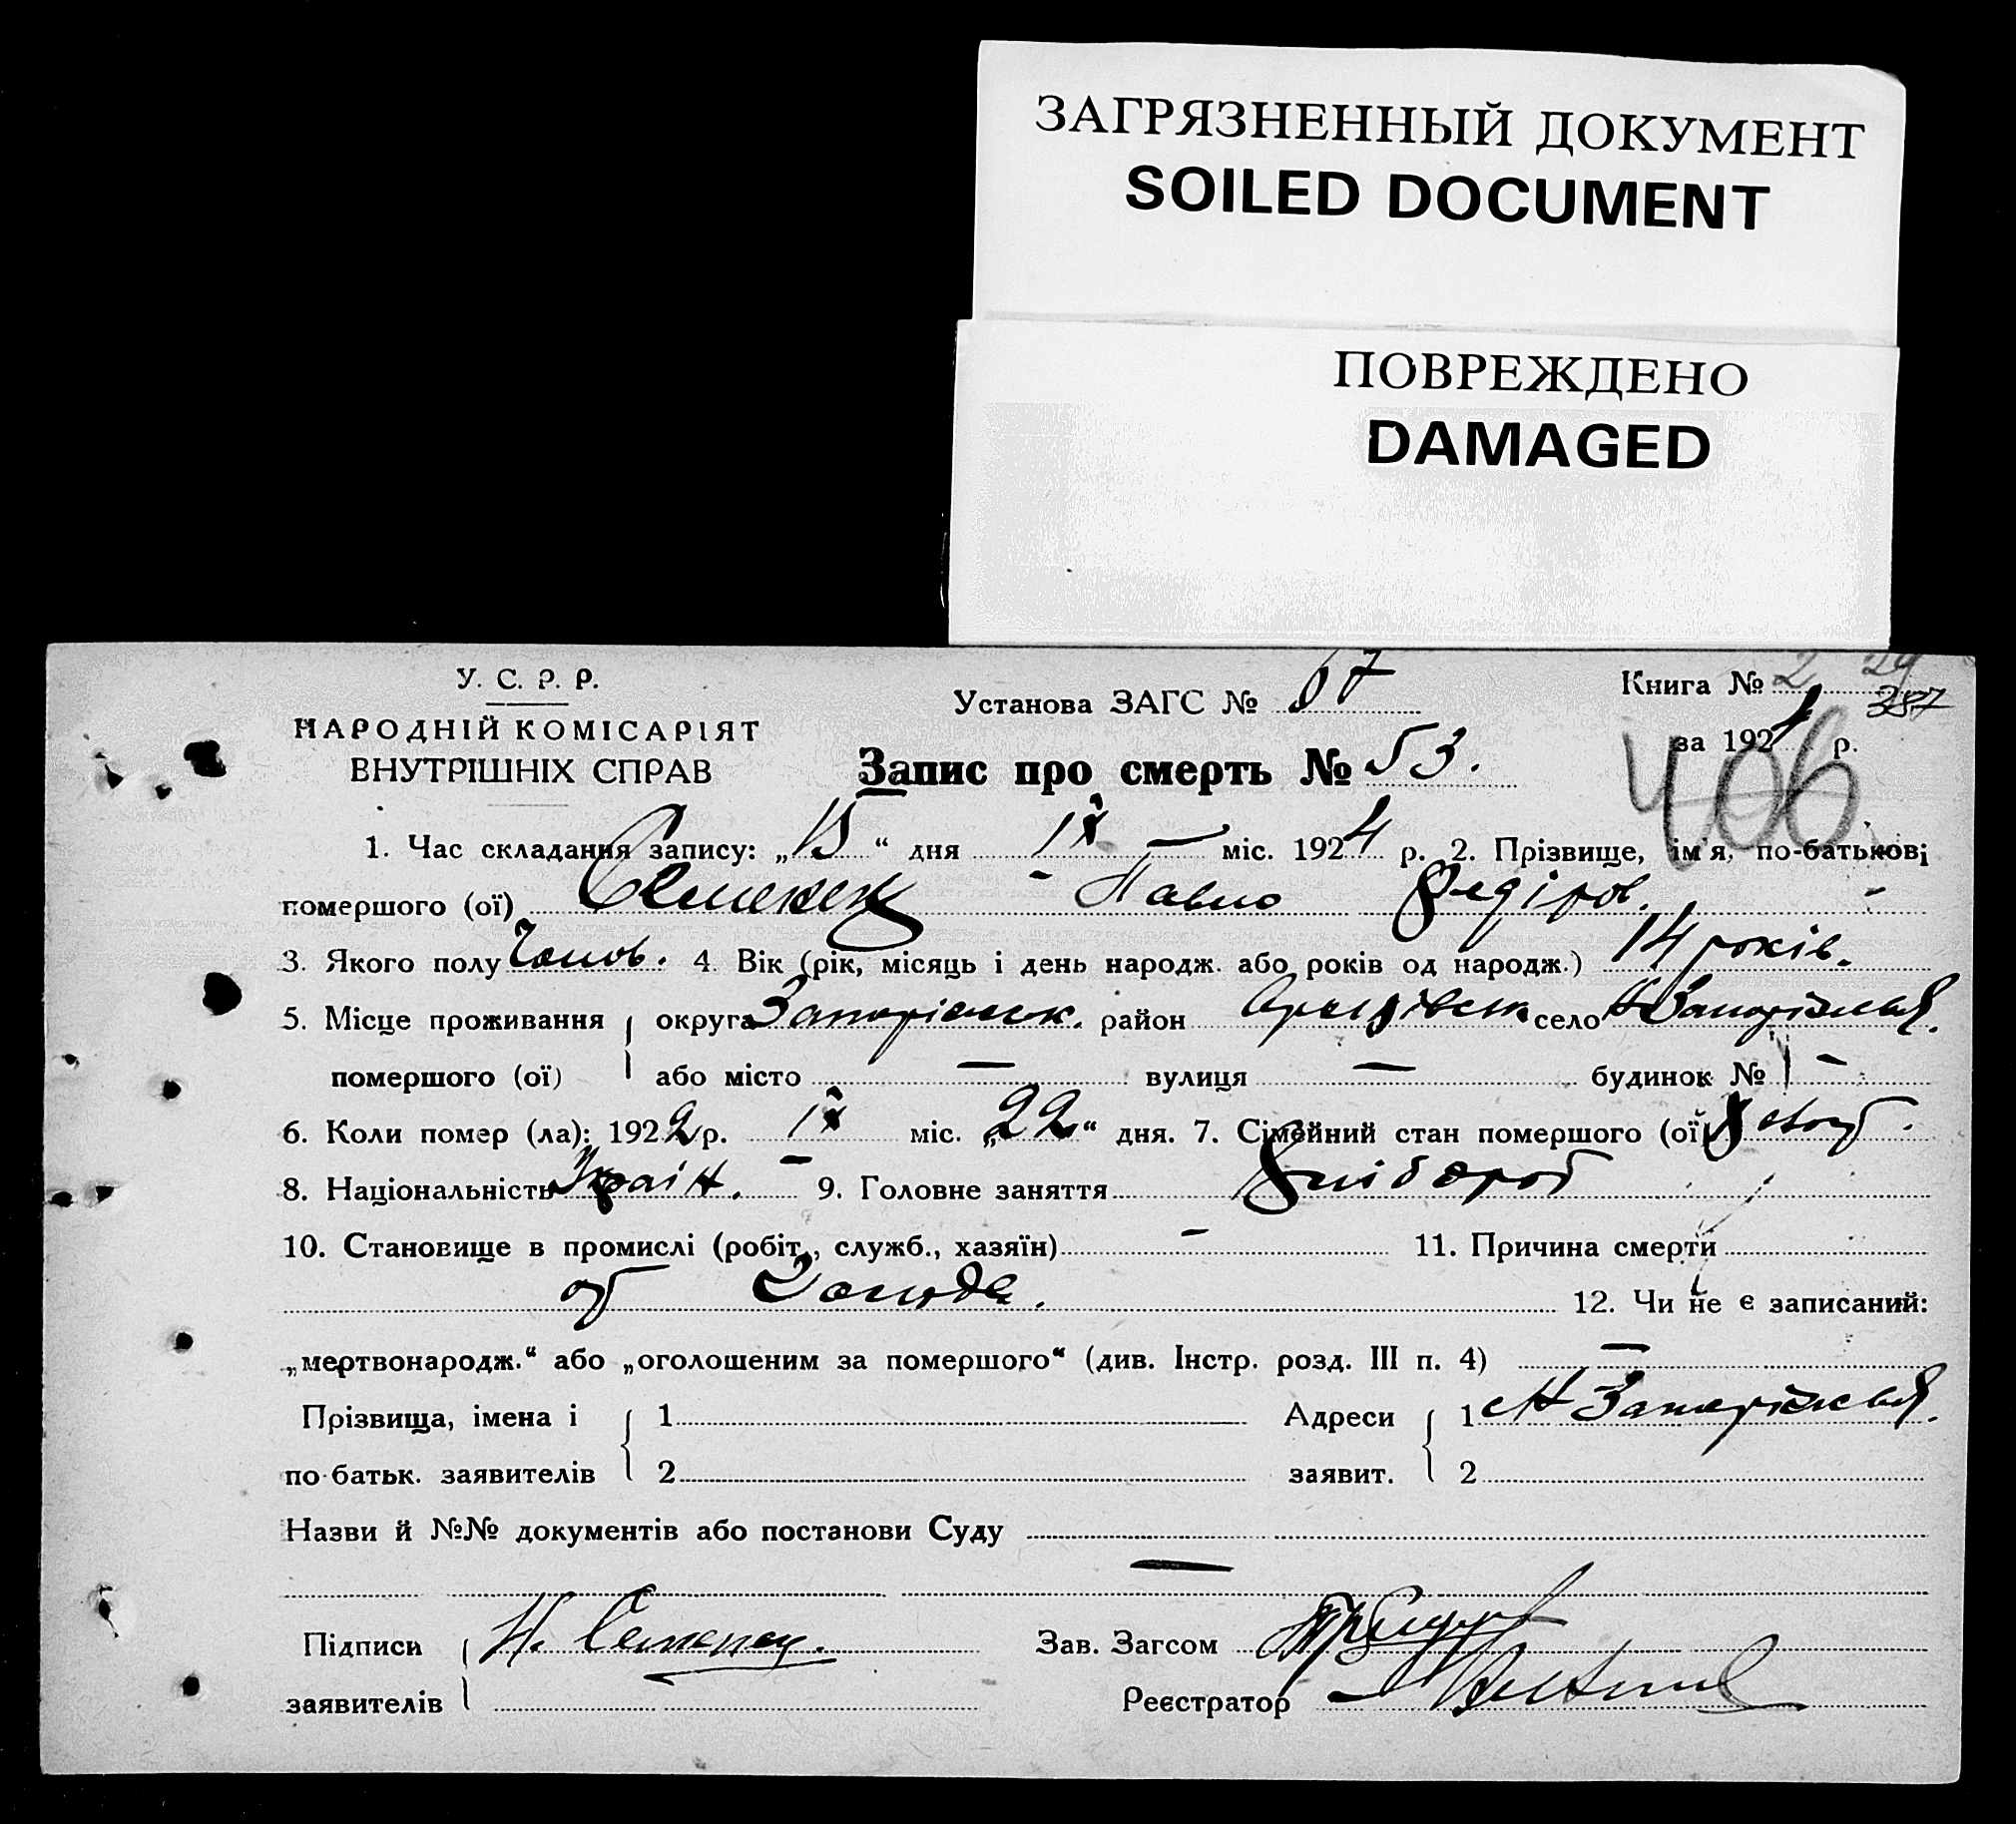 ЗАГРЯЗНЕННЫЙ ДОКУМЕНТ
SOILED DOCUMENT
ПОВРЕЖДЕНО
DAMAGED
У. С. Р. Р.
НАРОДНІЙ КОМІСАРІЯТ
ВНУТРІШНІХ СПРАВ
Установа ЗАГС № 67
Книга № 2 29
387
за 1924 р.
406
Запис про смерть № 53.
1. Час складання запису: „15“ дня IX – міс. 1924 р. 2. Прізвище, ім'я, по-батькові
помершого (ої) Семенек Павло Федіров.
3. Якого полу Чолов. 4. Вік (рік, місяць і день народж. або років од народж.) 14 років.
5. Місце проживання округа Запоріжск. район село Н Запоріжжя.
помершого (ої) або місто — вулиця — будинок № –
6. Коли помер (ла): 1922 р. IX міс. „22“ дня. 7. Сімейний стан помершого (ої)
8. Національність Украін. 9. Головне заняття Хлібороб
10. Становище в промислі (робіт., служб., хазяїн) – 11. Причина смерти
от Голода. 12. Чи не є записаний:
„мертвонародж.“ або „оголошеним за помершого“ (див. Інстр. розд. III п. 4) —
Прізвища, імена і 1 Адреси 1 Н Запоріжжя.
по-батьк. заявителів 2 заявит. 2
Назви й №№ документів або постанови Суду
—
Підписи Зав. Загсом
заявителів Реєстратор